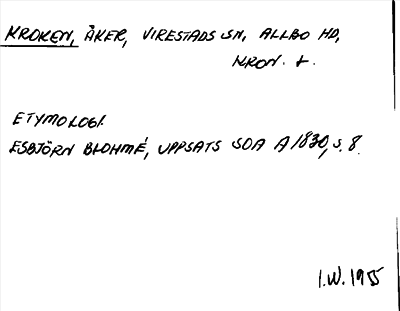 KROKEN, ÅKER, VIRESTADS SN, ALLBO HD,
KRON. L.
ETYMOLOGI.
ESBJÖRN BLOHMÉ, UPPSATS SOA A 1830, S. 8.
I.W. 1955